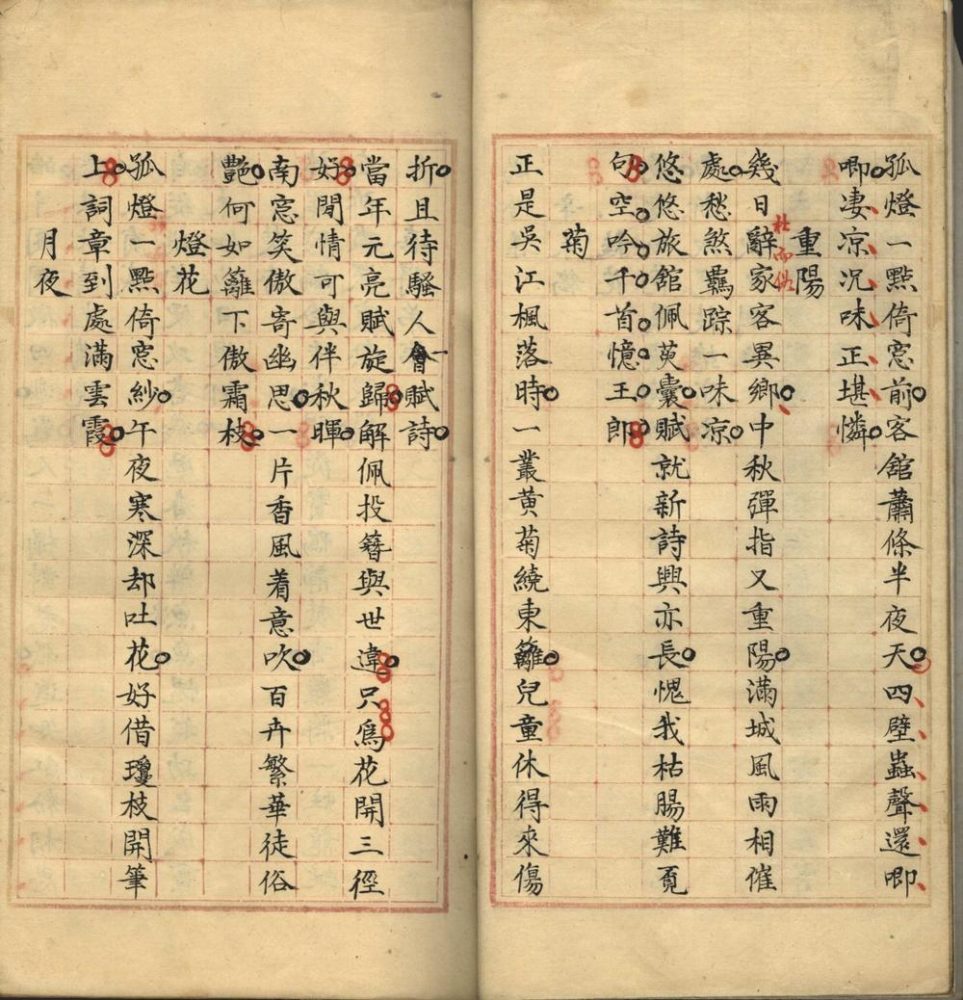 孤燈一點倚窓前客舘蕭條半夜天四壁蟲聲還唧
唧凄凉况味正堪憐
重陽
幾日辭家客異鄉中秋彈指又重陽滿城風雨相催
處愁煞羈踪一味凉
悠悠旅舘佩萸囊賦就新詩興亦長愧我枯腸難覓
句空吟千首憶王郎
菊
正是吳江楓落時一叢黄菊繞東籬兒童休得來傷
折且待騷人會賦詩
當年元亮賦旋歸解佩投簪與世違只爲花開三徑
好閒情可與伴秋暉
南窓笑傲寄幽思一片香風着意吹百卉繁華徒俗
艷何如籬下傲霜枝
燈花
孤燈一點倚窓紗午夜寒深却吐花好借瓊枝開筆
上詞章到處滿雲霞
月夜